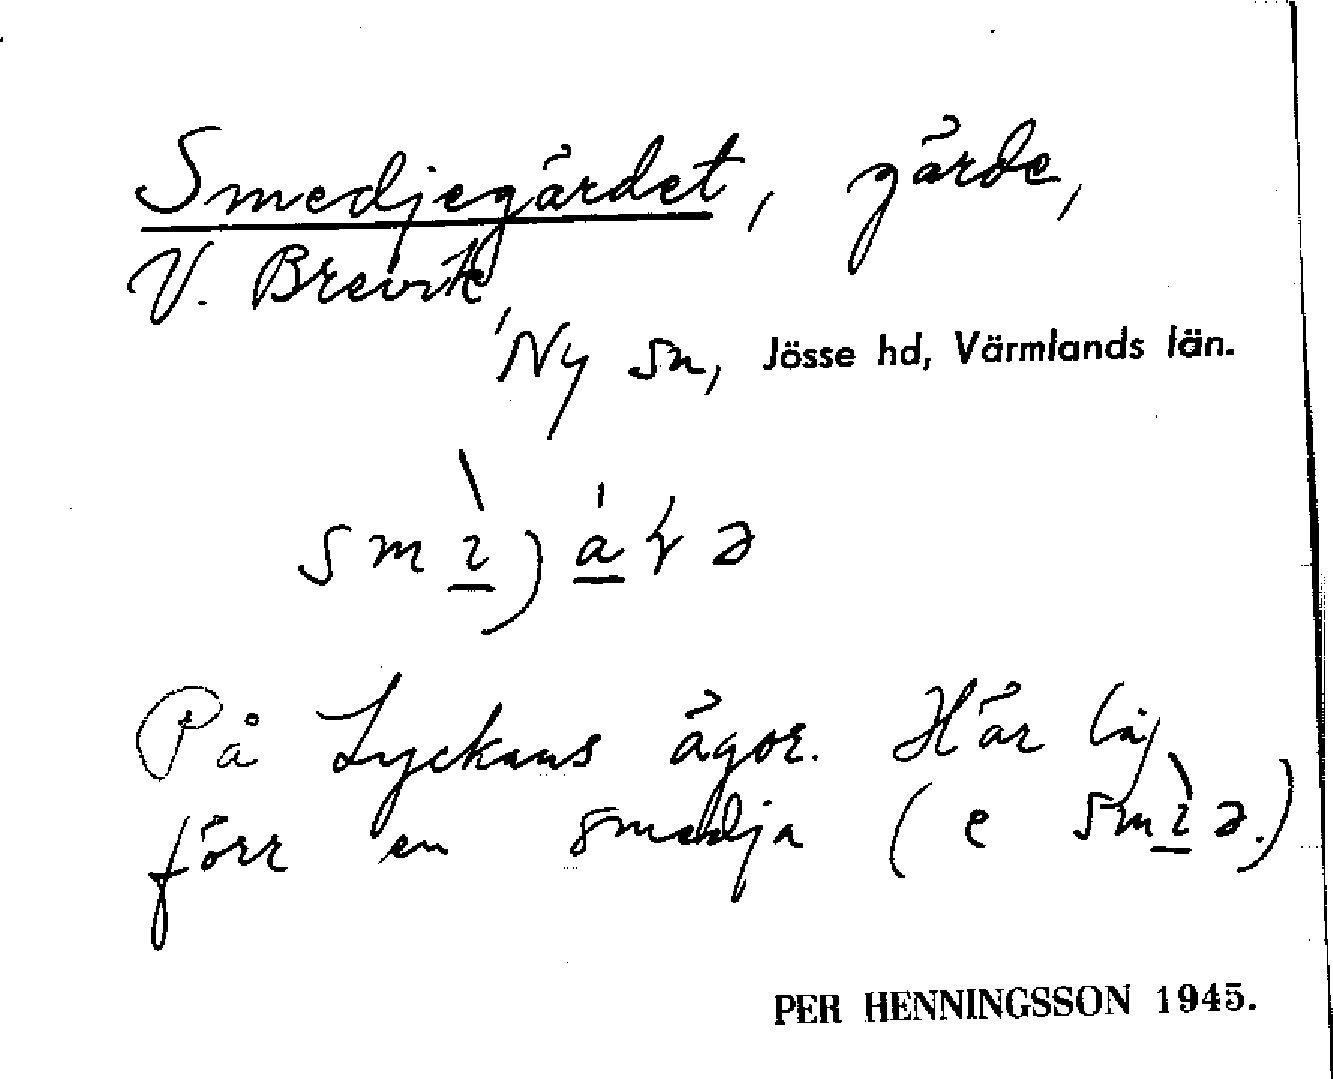 Smedjegärdet, gärde,
V. Brevik,
Ny sn, Jösse hd, Värmlands län.
På Lyckans ägor. Här låg
förr en smedja (e smìə.)
PER HENNINGSSON 1945.